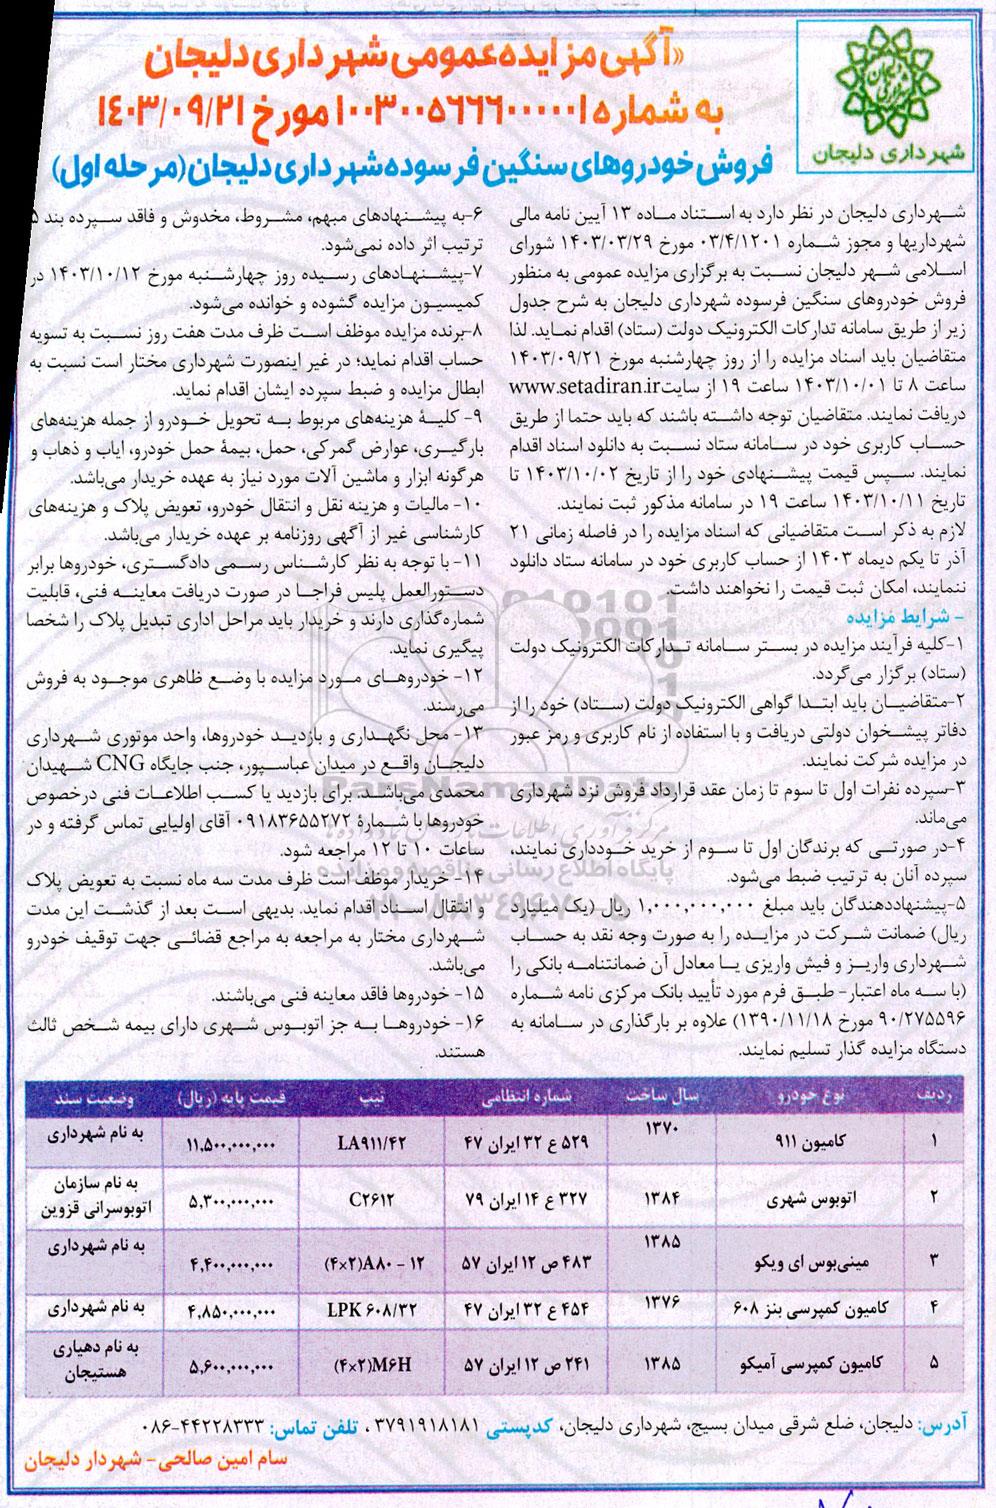 «آگهی مزایده عمومی شهرداری دلیجان
به شماره ۱۰۰۳۰۰۵۶۶۶۰۰۰۰۰۱ مورخ ۱۴۰۳/۰۹/۲۱
فروش خودروهای سنگین فرسوده شهرداری دلیجان (مرحله اول)
شهرداری دلیجان
شهرداری دلیجان در نظر دارد به استناد ماده ۱۳ آیین نامه مالی
شهرداریها و مجوز شماره ۰۳/۴/۱۲۰۱ مورخ ۱۴۰۳/۰۳/۲۹ شورای
اسلامی شهر دلیجان نسبت به برگزاری مزایده عمومی به منظور
فروش خودروهای سنگین فرسوده شهرداری دلیجان به شرح جدول
زیر از طریق سامانه تدارکات الکترونیک دولت (ستاد) اقدام نماید. لذا
متقاضیان باید اسناد مزایده را از روز چهارشنبه مورخ ۱۴۰۳/۰۹/۲۱
ساعت ۸ تا ۱۴۰۳/۱۰/۰۱ ساعت ۱۹ از سایت www.setadiran.ir
دریافت نمایند. متقاضیان توجه داشته باشند که باید حتما از طریق
حساب کاربری خود در سامانه ستاد نسبت به دانلود اسناد اقدام
نمایند. سپس قیمت پیشنهادی خود را از تاریخ ۱۴۰۳/۱۰/۰۲ تا
تاریخ ۱۴۰۳/۱۰/۱۱ ساعت ۱۹ در سامانه مذکور ثبت نمایند.
لازم به ذکر است متقاضیانی که اسناد مزایده را در فاصله زمانی ۲۱
آذر تا یکم دیماه ۱۴۰۳ از حساب کاربری خود در سامانه ستاد دانلود
ننمایند، امکان ثبت قیمت را نخواهند داشت.
- شرایط مزایده
۱-کلیه فرآیند مزایده در بستر سامانه تدارکات الکترونیک دولت
(ستاد) برگزار می‌گردد.
۲-متقاضیان باید ابتدا گواهی الکترونیک دولت (ستاد) خود را از
دفاتر پیشخوان دولتی دریافت و با استفاده از نام کاربری و رمز عبور
در مزایده شرکت نمایند.
۳-سپرده نفرات اول تا سوم تا زمان عقد قرارداد فروش نزد شهرداری
می‌ماند.
۴-در صورتی که برندگان اول تا سوم از خرید خودداری نمایند،
سپرده آنان به ترتیب ضبط می‌شود.
۵-پیشنهاددهندگان باید مبلغ ۱,۰۰۰,۰۰۰,۰۰۰ ریال (یک میلیارد
ریال) ضمانت شرکت در مزایده را به صورت وجه نقد به حساب
شهرداری واریز و فیش واریزی یا معادل آن ضمانتنامه بانکی را
(با سه ماه اعتبار- طبق فرم مورد تأیید بانک مرکزی نامه شماره
۹۰/۲۷۵۵۹۶ مورخ ۱۳۹۰/۱۱/۱۸) علاوه بر بارگذاری در سامانه به
دستگاه مزایده گذار تسلیم نمایند.
۶-به پیشنهادهای مبهم، مشروط، مخدوش و فاقد سپرده بند ۵
ترتیب اثر داده نمی‌شود.
۷-پیشنهادهای رسیده روز چهارشنبه مورخ ۱۴۰۳/۱۰/۱۲ در
کمیسیون مزایده گشوده و خوانده می‌شود.
۸-برنده مزایده موظف است ظرف مدت هفت روز نسبت به تسویه
حساب اقدام نماید؛ در غیر اینصورت شهرداری مختار است نسبت به
ابطال مزایده و ضبط سپرده ایشان اقدام نماید.
۹- کلیهٔ هزینه‌های مربوط به تحویل خودرو از جمله هزینه‌های
بارگیری، عوارض گمرکی، حمل، بیمهٔ حمل خودرو، ایاب و ذهاب و
هرگونه ابزار و ماشین آلات مورد نیاز به عهده خریدار می‌باشد.
۱۰- مالیات و هزینه نقل و انتقال خودرو، تعویض پلاک و هزینه‌های
کارشناسی غیر از آگهی روزنامه بر عهده خریدار می‌باشد.
۱۱- با توجه به نظر کارشناس رسمی دادگستری، خودروها برابر
دستورالعمل پلیس فراجا در صورت دریافت معاینه فنی، قابلیت
شماره‌گذاری دارند و خریدار باید مراحل اداری تبدیل پلاک را شخصا
پیگیری نماید.
۱۲- خودروهای مورد مزایده با وضع ظاهری موجود به فروش
می‌رسند.
۱۳- محل نگهداری و بازدید خودروها، واحد موتوری شهرداری
دلیجان واقع در میدان عباسپور، جنب جایگاه CNG شهیدان
محمدی می‌باشد. برای بازدید یا کسب اطلاعات فنی درخصوص
خودروها با شمارهٔ ۰۹۱۸۳۶۵۵۲۷۲ آقای اولیایی تماس گرفته و در
ساعات ۱۰ تا ۱۲ مراجعه شود.
۱۴- خریدار موظف است ظرف مدت سه ماه نسبت به تعویض پلاک
و انتقال اسناد اقدام نماید. بدیهی است بعد از گذشت این مدت
شهرداری مختار به مراجعه به مراجع قضائی جهت توقیف خودرو
می‌باشد.
۱۵- خودروها فاقد معاینه فنی می‌باشند.
۱۶- خودروها به جز اتوبوس شهری دارای بیمه شخص ثالث
هستند.
ردیف نوع خودرو سال ساخت شماره انتظامی تیپ قیمت پایه (ریال) وضعیت سند
۱ کامیون ۹۱۱ ۱۳۷۰ ۵۲۹ ع ۳۲ ایران ۴۷ LA۹۱۱/۴۲ ۱۱,۵۰۰,۰۰۰,۰۰۰ به نام شهرداری
۲ اتوبوس شهری ۱۳۸۴ ۳۲۷ ع ۱۴ ایران ۷۹ C۲۶۱۲ ۵,۳۰۰,۰۰۰,۰۰۰ به نام سازمان اتوبوسرانی قزوین
۳ مینی‌بوس ای ویکو ۱۳۸۵ ۴۸۳ ص ۱۲ ایران ۵۷ ۱۲ - A۸۰(۴×۲) ۴,۴۰۰,۰۰۰,۰۰۰ به نام شهرداری
۴ کامیون کمپرسی بنز ۶۰۸ ۱۳۷۶ ۴۵۴ ع ۳۲ ایران ۴۷ LPK ۶۰۸/۳۲ ۴,۸۵۰,۰۰۰,۰۰۰ به نام شهرداری
۵ کامیون کمپرسی آمیکو ۱۳۸۵ ۲۴۱ ص ۱۲ ایران ۵۷ M۶H(۴×۲) ۵,۶۰۰,۰۰۰,۰۰۰ به نام دهیاری هستیجان
آدرس: دلیجان، ضلع شرقی میدان بسیج، شهرداری دلیجان، کدپستی ۳۷۹۱۹۱۸۱۸۱ ، تلفن تماس: ۴۴۲۲۸۳۳۳-۰۸۶
سام امین صالحی- شهردار دلیجان
ParsNamadData
پایگاه اطلاع رسانی مناقصه و مزایده